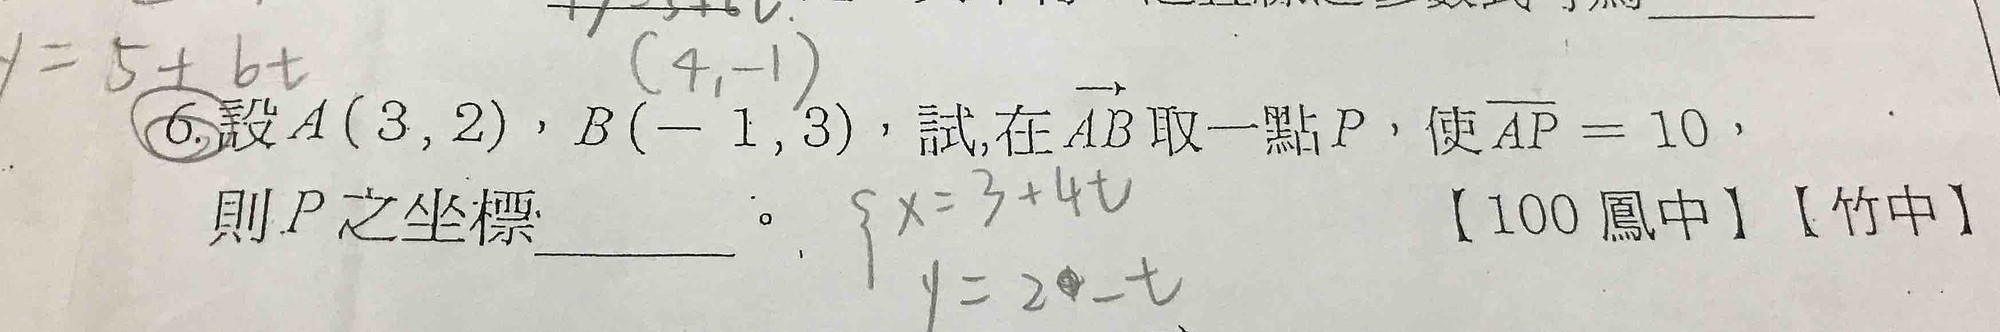 y = 5 + 6t
(4,-1)
6.設A(3,2),B(-1,3),試在AB取一點P,使AP=10,
則P之坐標______。
【100 鳳中】【竹中】
x=3+4t
y=2-t